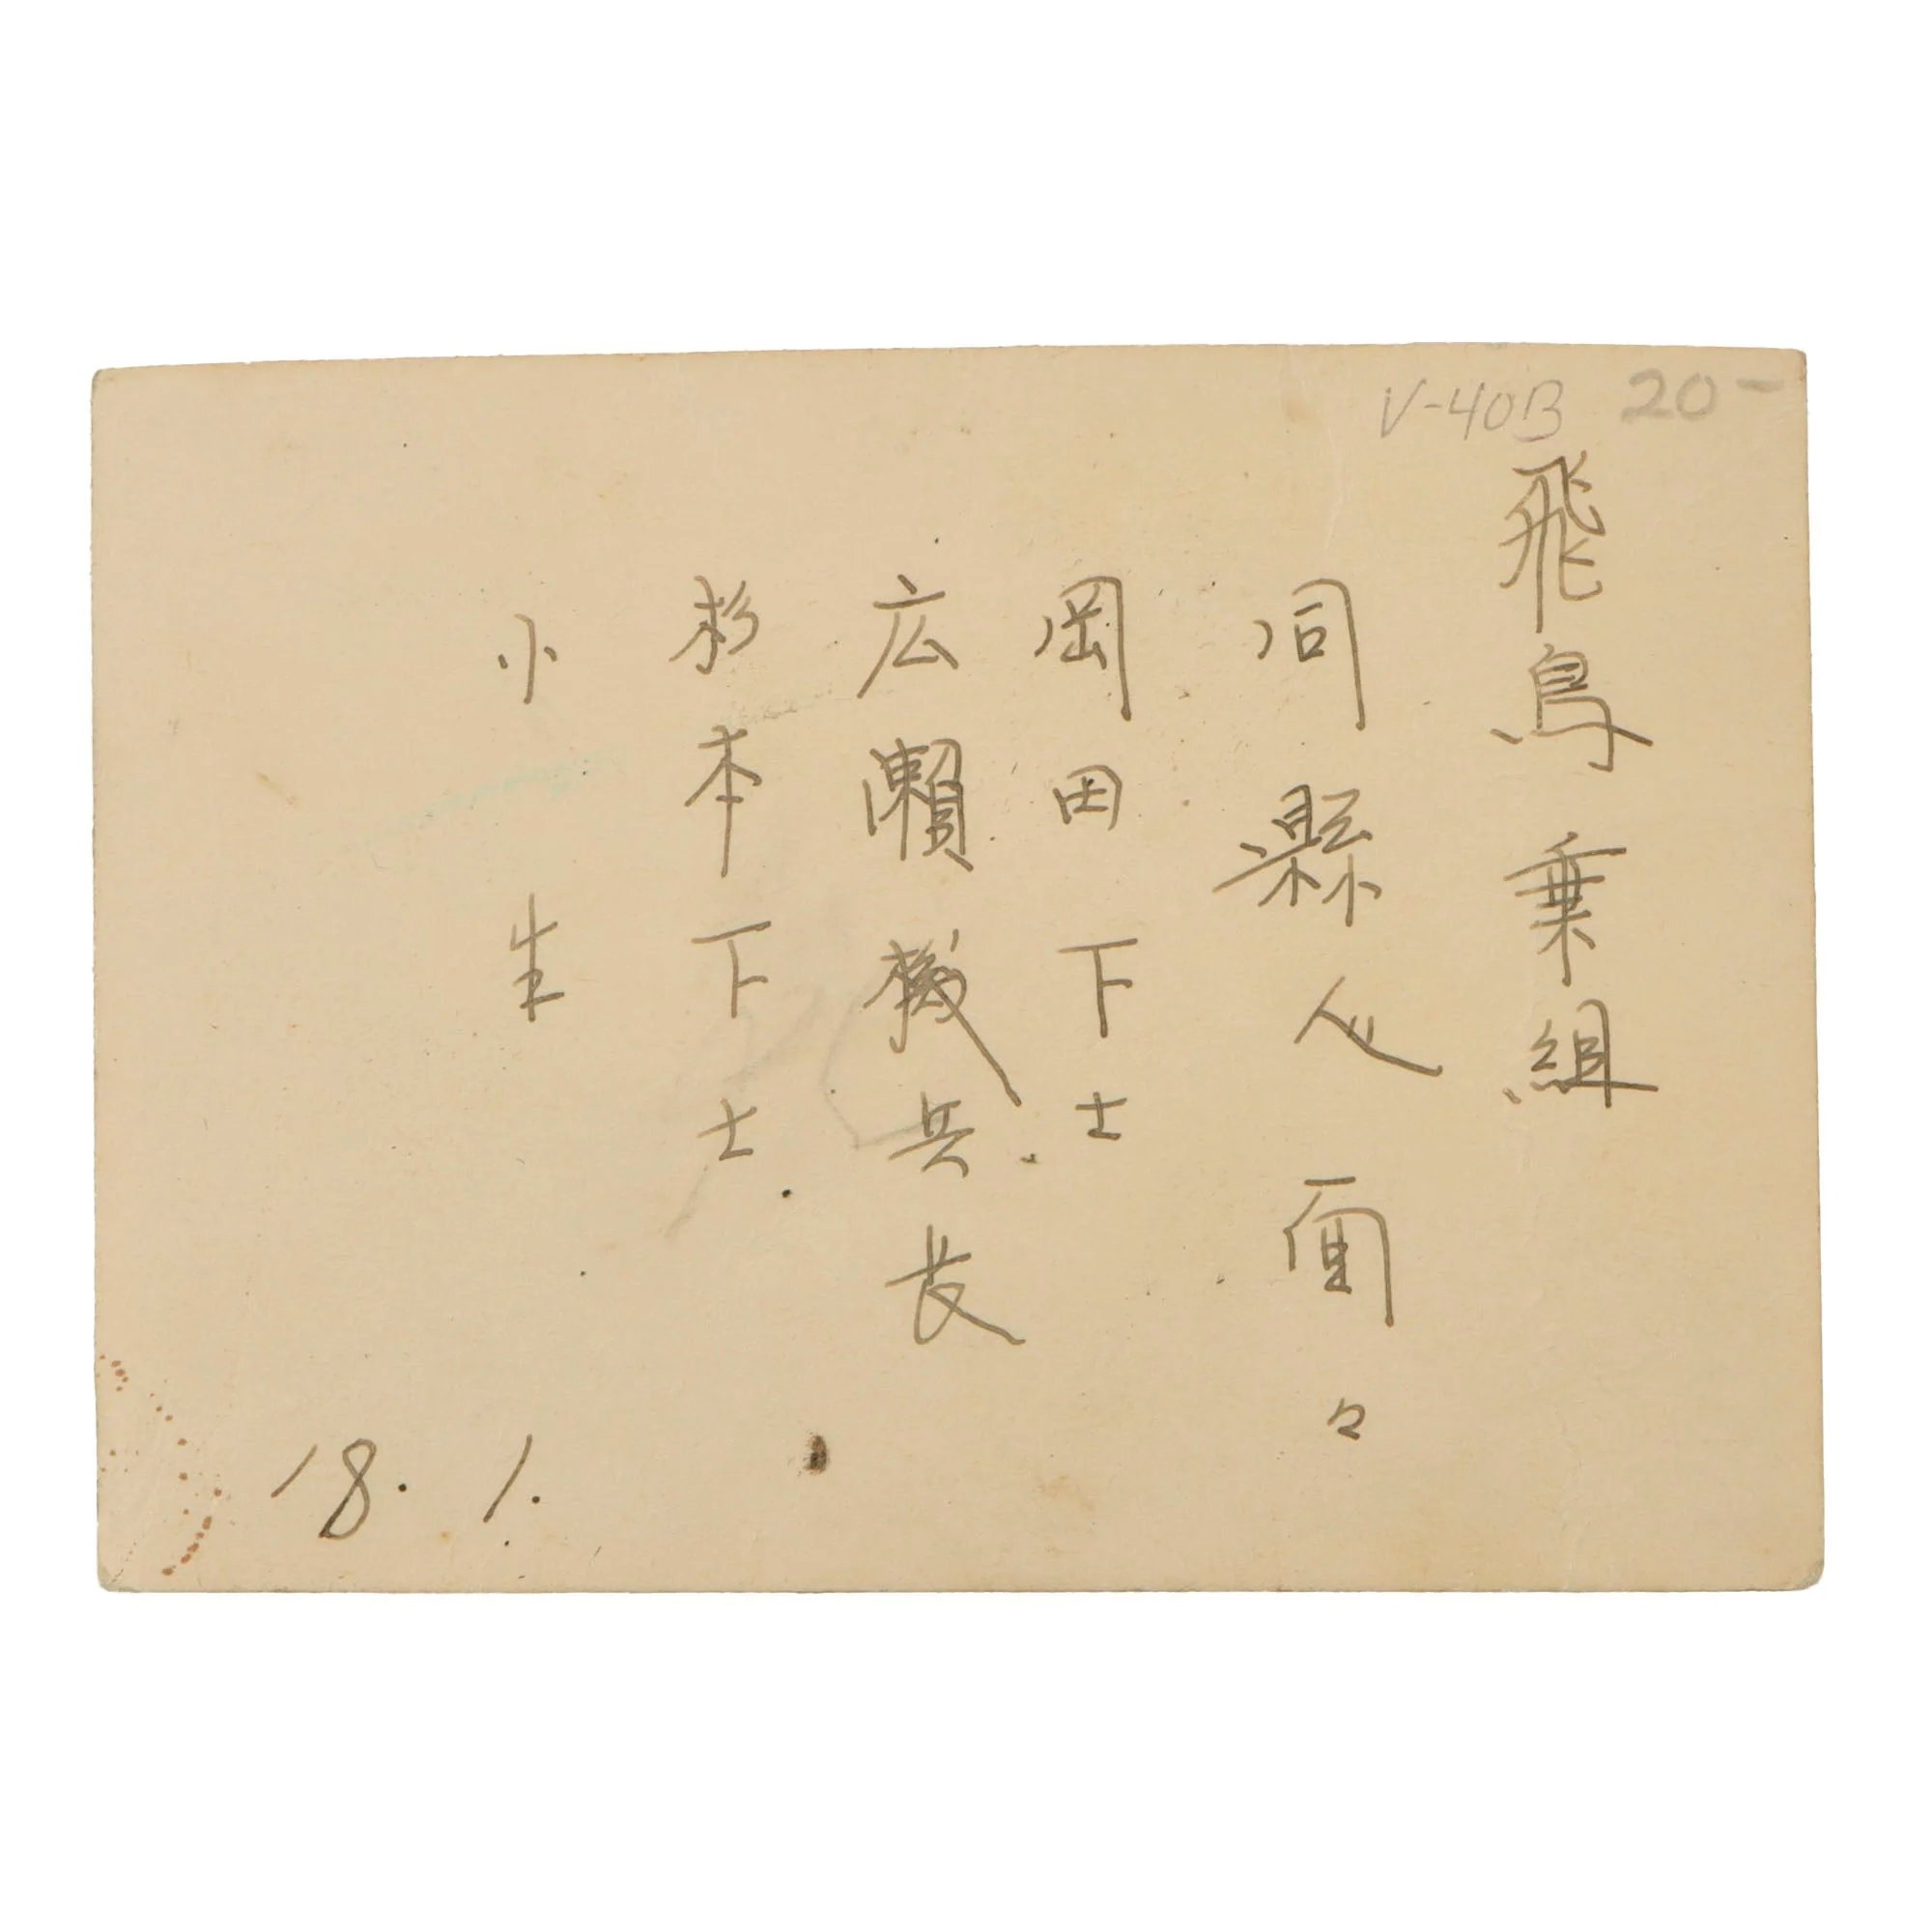 V-40B 20-
飛鳥乗組
同縣人面々
岡田下士
広瀬機兵長
杉本下士
小生
18. 1.